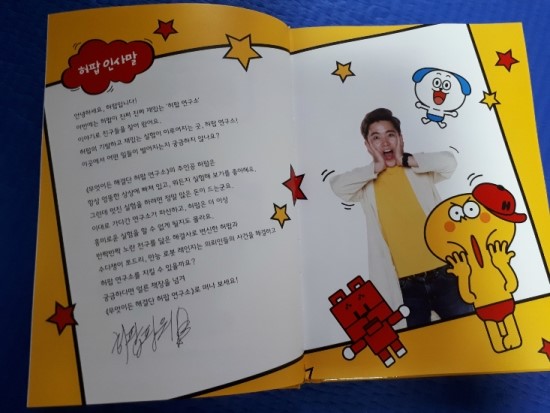 허팝 인사말
안녕하세요, 허팝입니다!
이번에는 허팝이 진짜 진짜 재밌는 '허팝 연구소'
이야기로 친구들을 찾아 왔어요.
허팝의 기발하고 재밌는 실험이 이루어지는 곳, 허팝 연구소!
이곳에서 어떤 일들이 벌어지는지 궁금하지 않나요?
《무엇이든 해결단 허팝 연구소》의 주인공 허팝은
항상 엉뚱한 상상에 빠져 있고, 뭐든지 실험해 보기를 좋아해요.
그런데 멋진 실험을 하려면 정말 많은 돈이 드는군요.
이대로 가다간 연구소가 파산하고, 허팝은 더 이상
흥미로운 실험을 할 수 없게 될지도 몰라요.
반짝반짝 노란 전구를 닮은 해결사로 변신한 허팝과
수다쟁이 호드리, 만능 로봇 재인지는 의뢰인들의 사건을 해결하고
허팝 연구소를 지킬 수 있을까요?
궁금하다면 얼른 책장을 넘겨
《무엇이든 해결단 허팝 연구소》로 어서 오세요!
H
7